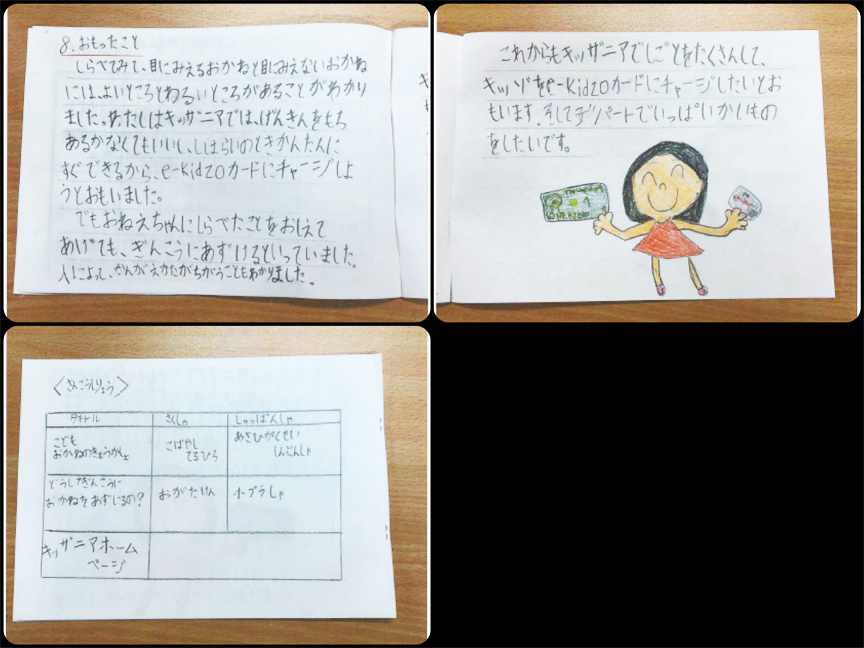 8.おもったこと
しらべてみて、目にみえるおかねと目にみえないおかね
には、よいところとわるいところがあることがわかり
ました。わたしはキッザニアでは、げんきんをもち
あるかなくてもいいし、しはらいのときかんたんに
すぐできるから、e-Kidzoカードにチャージしよ
うとおもいました。
でもおねえちゃんにしらべたことをおしえて
あげても、ぎんこうにあずけるといっていました。
人によって、かんがえかたがちがうこともわかりました。
これからもキッザニアでしごとをたくさんして、
キッゾをe-Kidzoカードにチャージしたいとお
もいます。そしてデパートでいっぱいかいもの
をしたいです。
〈さんこうしりょう〉
タイトル さくしゃ しゅっぱんしゃ
こども
おかねのきょうかしょ
こばやし
てるひろ
あさひがくせい
しんぶんしゃ
どうしてぎんこうに
おかねをあずけるの?
おがたけん
ポプラしゃ
キッザニアホーム
ページ